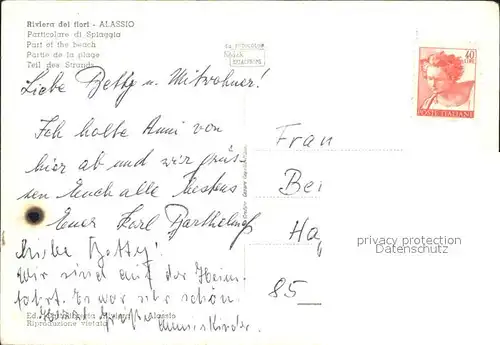 Riviera dei fiori - ALASSIO
Particolare di Spiaggia
Part of the beach
Partie de la plage
Teil des Strands
40
LIRE
POSTE ITALIANE
Liebe Betty u. Mitwohner!
Ich holte Anni von
hier ab und wir grüs-
sen Euch alle bestens
Euer Karl
Liebe Betty!
Wir sind auf der Heim-
fahrt. Es war sehr schön
Herzl. Grüße
Frau
Bei
Ha
85
privacy protection
Datenschutz
Alassio
Riproduzione vietata